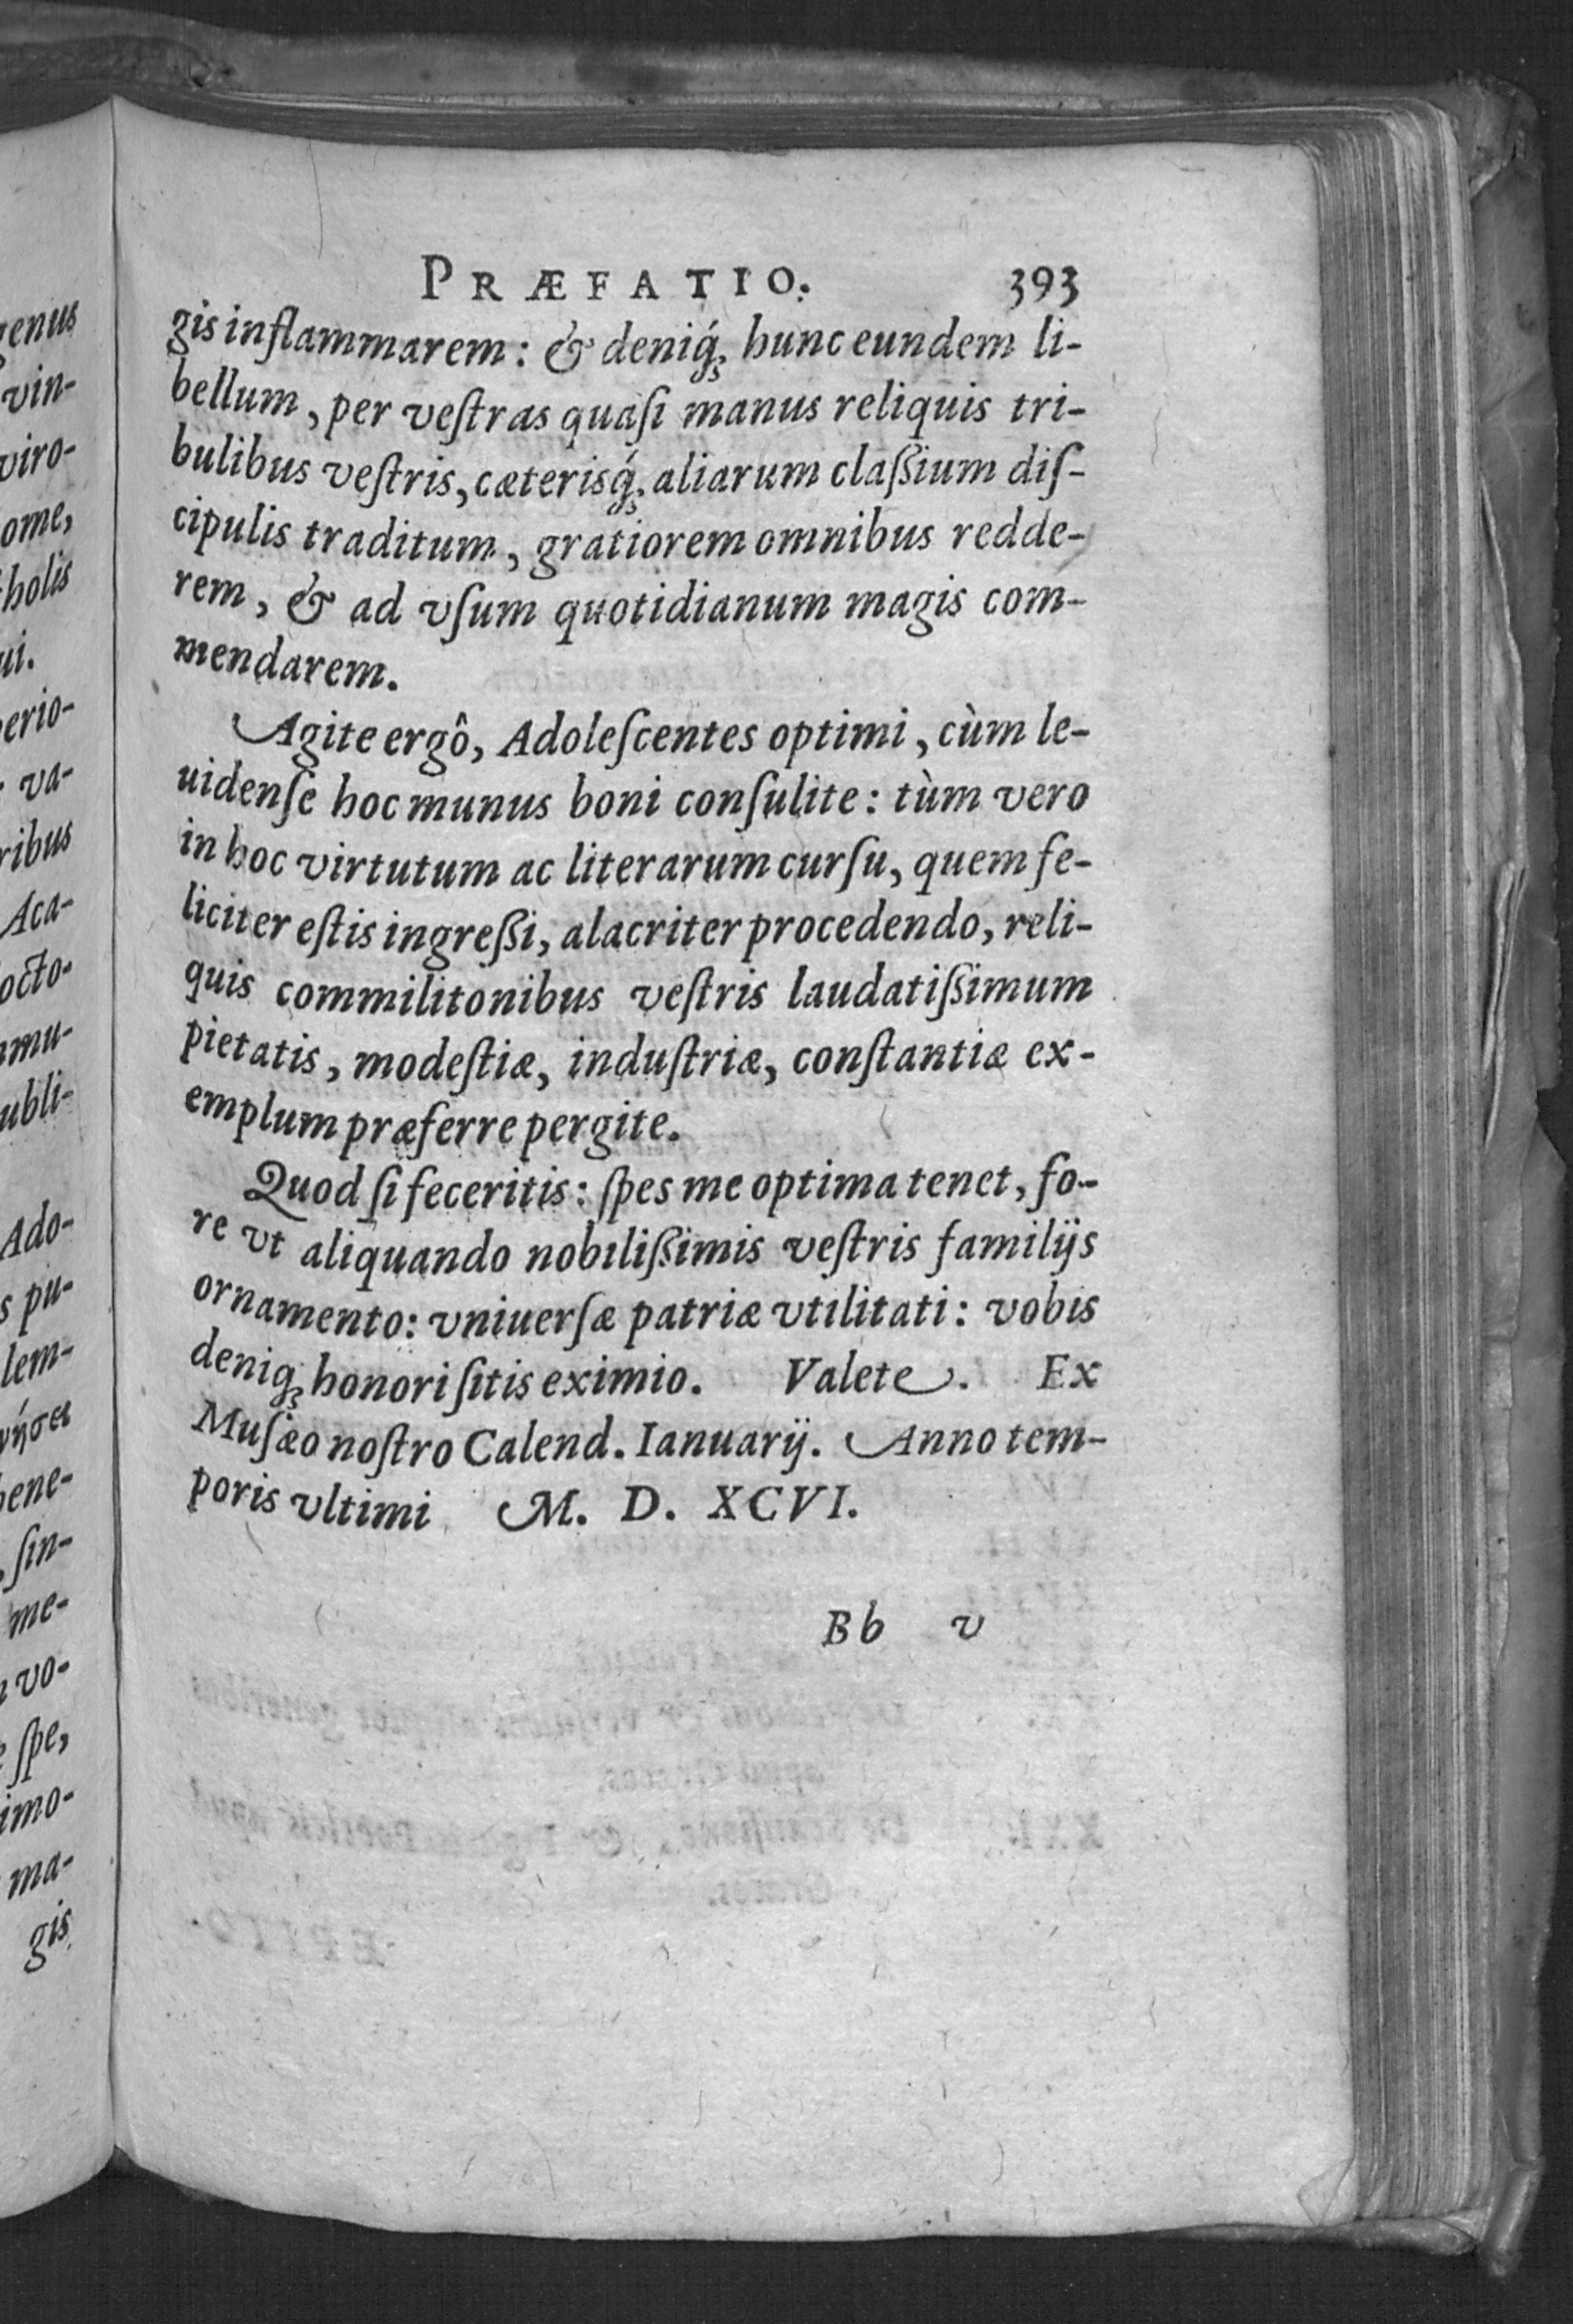 PRÆFATIO. 393
gis inflammarem: & deniq́; hunc eundem li-
bellum, per veſtras quaſi manus reliquis tri-
bulibus veſtris, cæterisq́; aliarum claßium diſ-
cipulis traditum, gratiorem omnibus redde-
rem, & ad vſum quotidianum magis com-
mendarem.
Agite ergô, Adoleſcentes optimi, cùm le-
uidenſe hoc munus boni conſulite: tùm vero
in hoc virtutum ac literarum curſu, quem fe-
liciter eſtis ingreßi, alacriter procedendo, reli-
quis commilitonibus veſtris laudatißimum
pietatis, modeſtiæ, induſtriæ, conſtantiæ ex-
emplum præferre pergite.
Quod ſi feceritis: ſpes me optima tenet, fo-
re vt aliquando nobilißimis veſtris familijs
ornamento: vniuerſæ patriæ vtilitati: vobis
deniq; honori ſitis eximio. Valete. Ex
Muſæo noſtro Calend. Ianuarij. Anno tem-
poris vltimi M. D. XCVI.
Bb v
genus
vin-
viro-
ome,
holis
ui.
erio-
va-
ribus
Aca-
octo-
mu-
ubli-
Ado-
s pu-
lem-
ήσει
bene-
ſin-
me-
vo-
ſpe,
imo-
ma-
gis